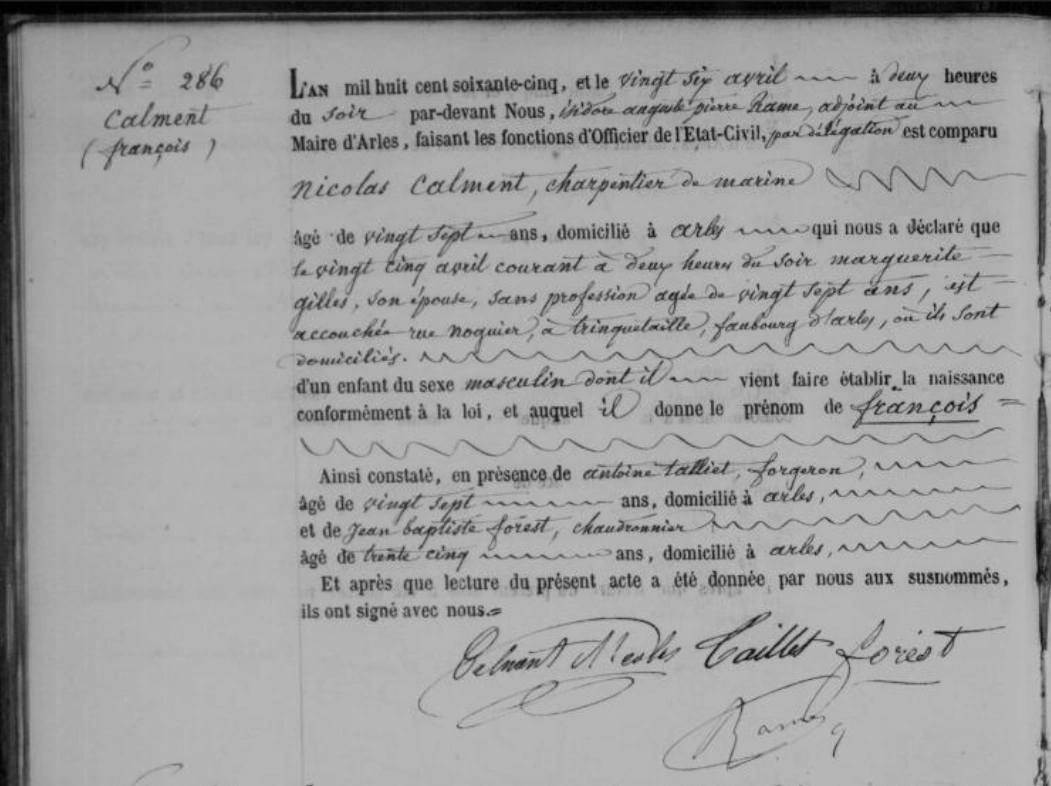 N° 286
Calment
(françois)
L'AN mil huit cent soixante-cinq, et le vingt six avril à deux heures
du soir par-devant Nous, isidore auguste pierre Rame, adjoint au
Maire d'Arles, faisant les fonctions d'Officier de l'Etat-Civil, par délégation est comparu
nicolas Calment, charpentier de marine
âgé de vingt sept ans, domicilié à arles qui nous a déclaré que
le vingt cinq avril courant à deux heures du soir marguerite
gilles, son épouse, sans profession agée de vingt sept ans, est
accouchée rue noguier, à trinquetaille, faubourg d'arles, où ils sont
domiciliés.
d'un enfant du sexe masculin dont il vient faire établir la naissance
conformément à la loi, et auquel il donne le prénom de françois =
Ainsi constaté, en présence de antoine talliet, forgeron,
âgé de vingt sept ans, domicilié à arles,
et de Jean baptiste forest, chaudronnier
âgé de trente cinq ans, domicilié à arles,
Et après que lecture du présent acte a été donnée par nous aux susnommés,
ils ont signé avec nous.=
Calment Nicolas Taillet forest
Rame